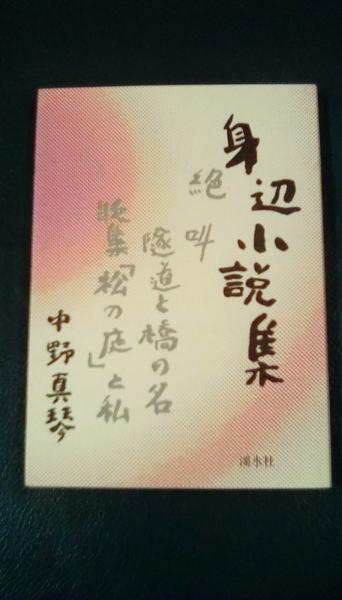 身辺小説集
絶叫
隧道と橋の名
歌集「松の庭」と私
中野真琴
溪水社